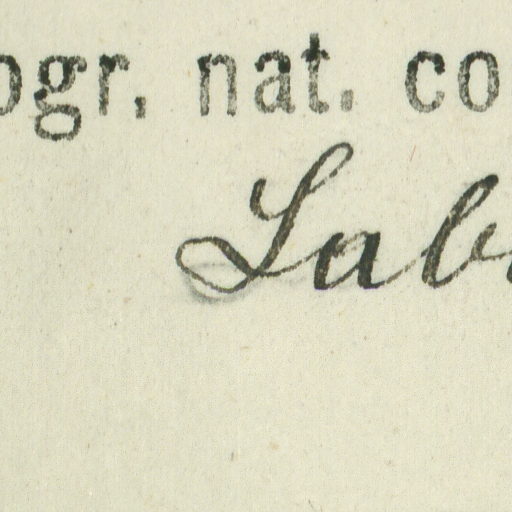 ogr. nat. co
Lab